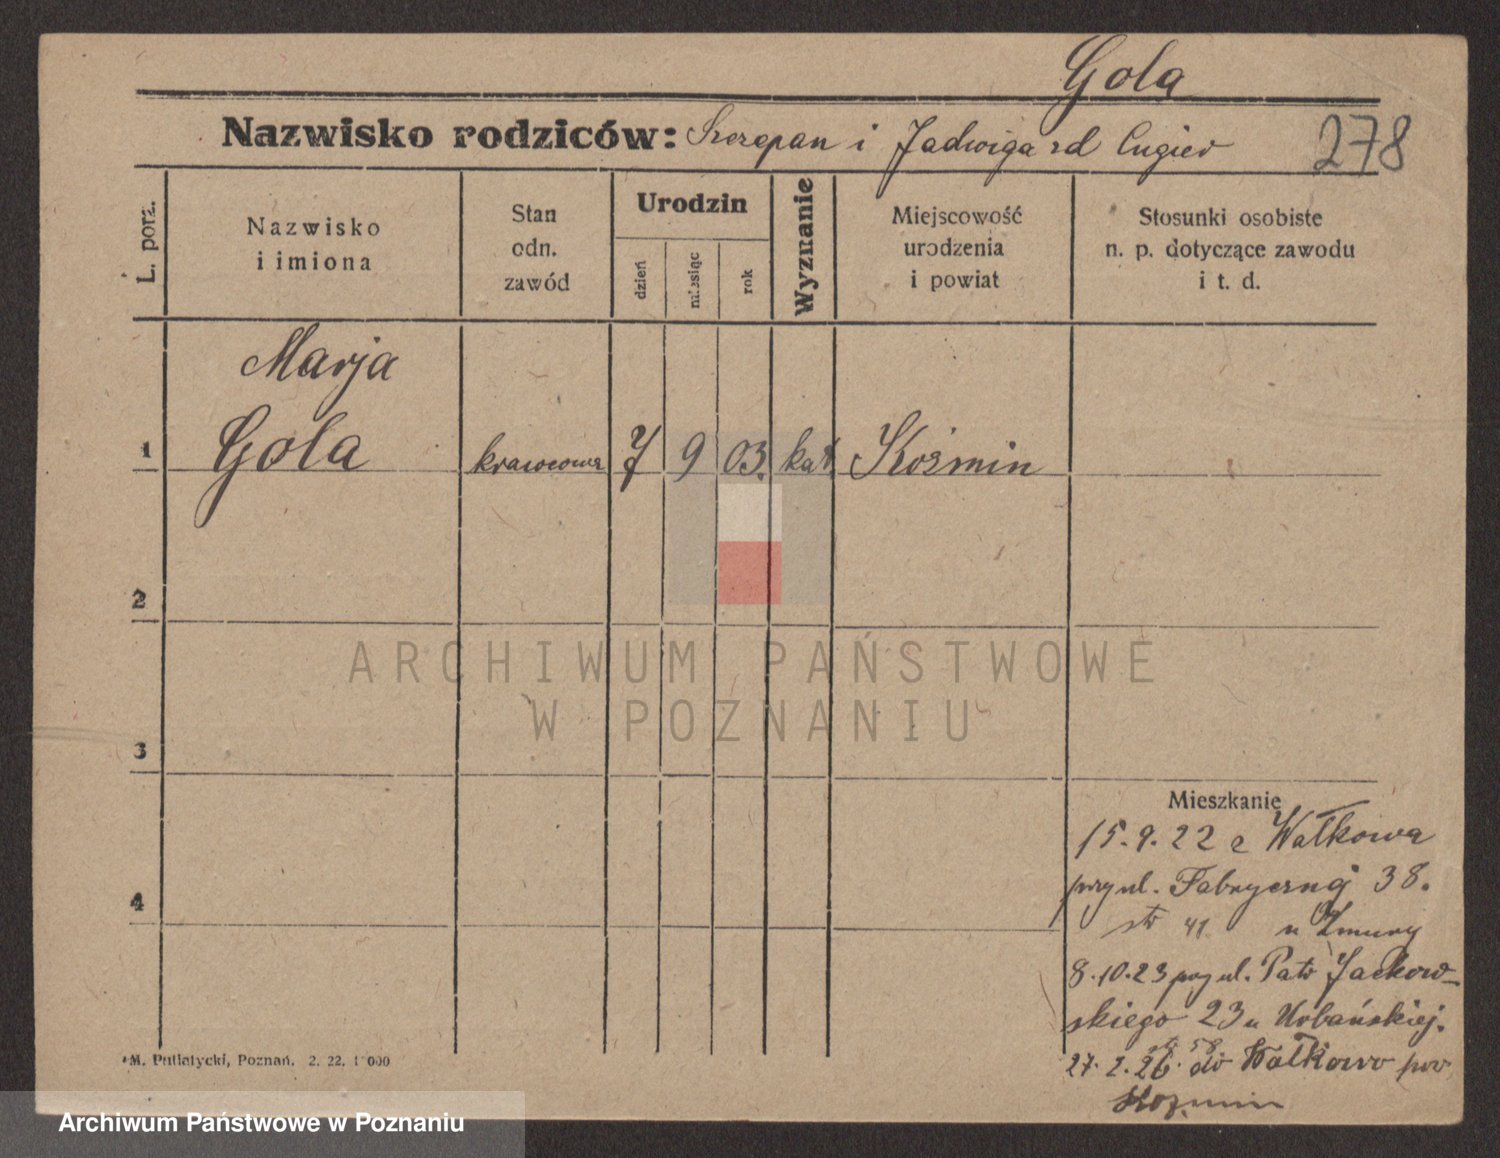 Gola
Nazwisko rodziców: Szczepan i Jadwiga zd Cugier
278
L. porz.
Nazwisko
i imiona
Stan
odn.
zawód
Urodzin
dzień
miesiąc
rok
Wyznanie
Miejscowość
urodzenia
i powiat
Stosunki osobiste
n. p. dotyczące zawodu
i t. d.
Marja
1 Gola krawcowa 7 9 03. kat. Koźmin
2
ARCHIWUM PAŃSTWOWE
W POZNANIU
3
Mieszkanie
15.9.22 z Wałkowa
przy ul. Fabrycznej 38.
4
str 41 u Żmury
8.10.23 przy ul. Patr Jackow-
skiego 23 u Urbańskiej.
str 58
27.2.26. do Wałkowo pow
Kozmin
M. Putiatycki, Poznań. 2. 22. 000
Archiwum Państwowe w Poznaniu